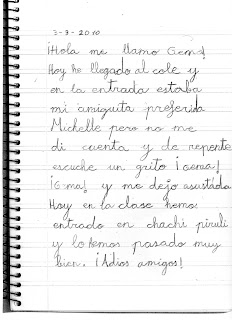 3-3-2010
¡Hola me llamo Gema!
Hoy he llegado al cole y
en la entrada estaba
mi amiguita preferida
Michelle pero no me
di cuenta y de repente
escuche un grito ¡Gema!
¡Gma! y me dejo asustada
Hoy en la clase hemos
entrado en chachi piruli
y lo hemos pasado muy
bien. ¡Adios amigos!